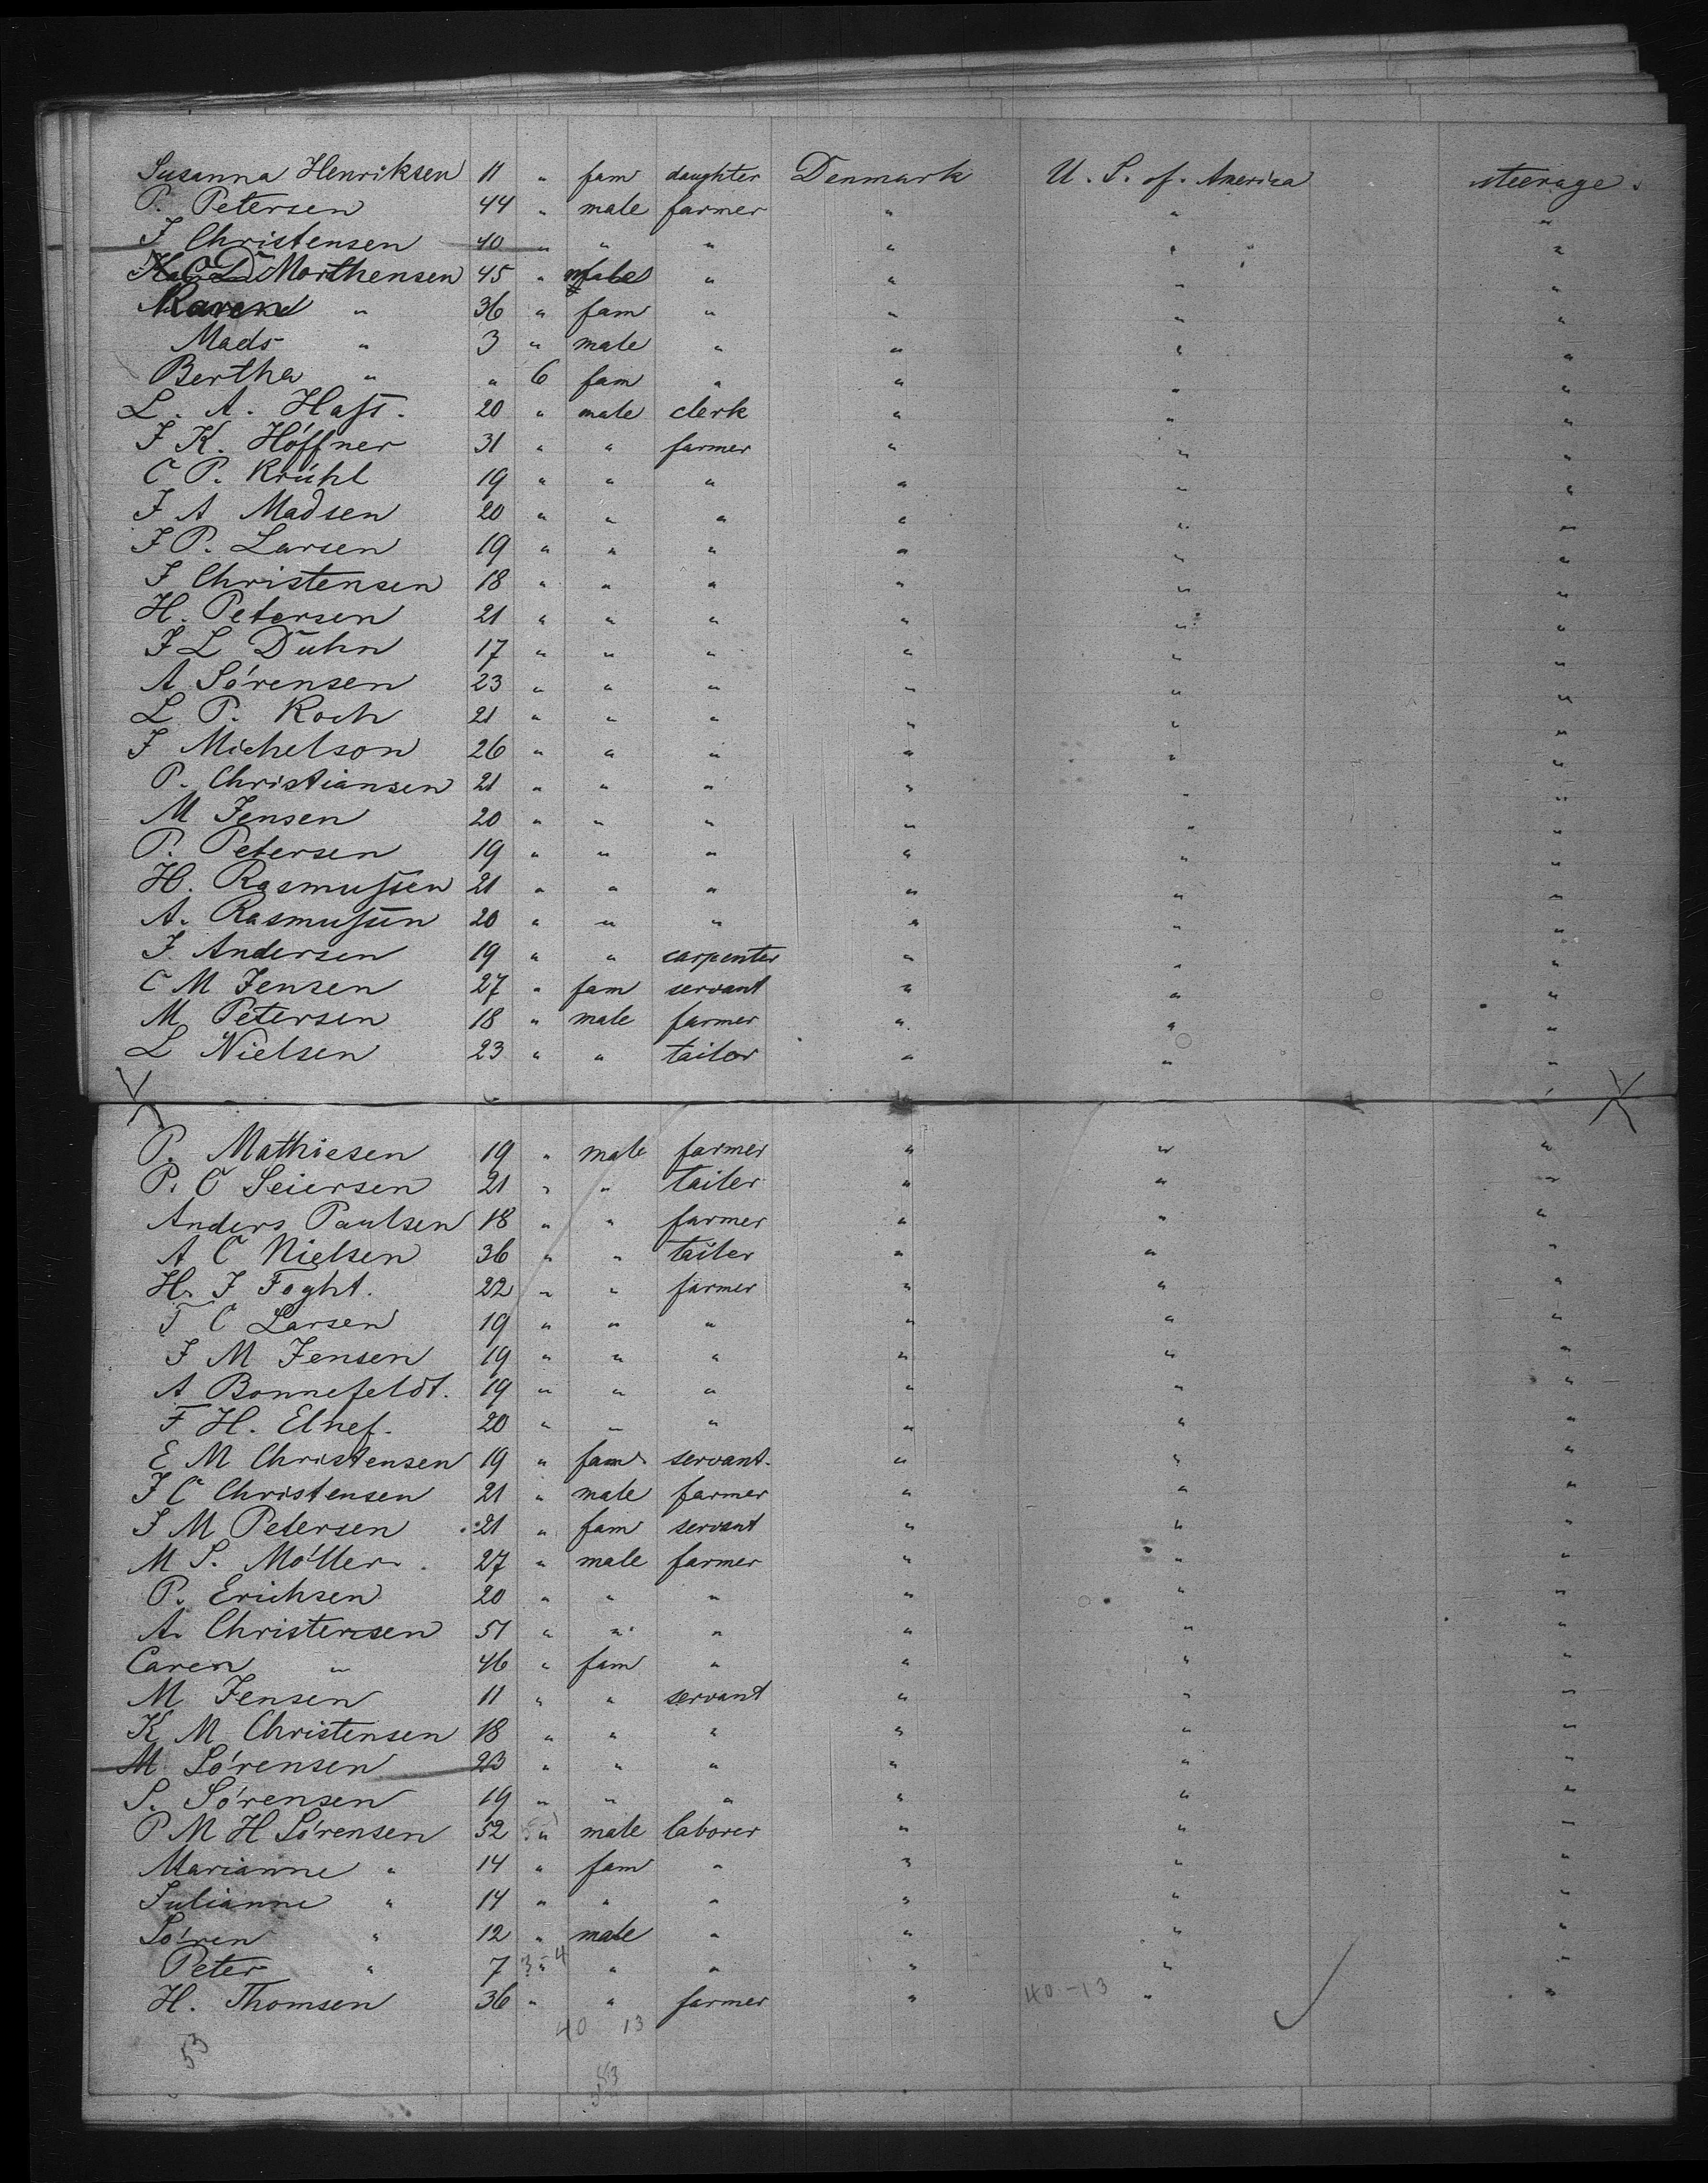 Susanna Henriksen 11 " fam daughter Denmark U. S. of. America steerage.
P. Petersen 44 " male farmer " " "
J Christensen 40 " " " " " "
Morthensen 45 " male " " " "
Karen " 36 " fam " " " "
Mads " 3 " male " " " "
Bertha " " 6 fam " " " "
L. A. Hast. 20 " male clerk " " "
J K. Höffner 31 " " farmer " " "
C P. Krühl 19 " " " " " "
J A Madsen 20 " " " " " "
J P. Larsen 19 " " " " " "
J Christensen 18 " " " " " "
H. Petersen 21 " " " " " "
J L Duhn 17 " " " " " "
A Sörensen 23 " " " " " "
L P. Koch 21 " " " " " "
J Michelson 26 " " " " " "
P. Christiansen 21 " " " " " "
M Jensen 20 " " " " " "
P. Petersen 19 " " " " " "
H. Rasmussen 21 " " " " " "
A. Rasmussen 20 " " " " " "
J. Andersen 19 " " carpenter " " "
C M Jensen 27 " fam servant " " "
M Petersen 18 " male farmer " " "
L Nielsen 23 " " tailor " " "
P. Mathiesen 19 " male farmer " " "
P. C Seiersen 21 " " tailer " " "
Anders Paulsen 18 " " farmer " " "
A C Nielsen 36 " " tailer " " "
H. J Foght. 22 " " farmer " " "
T C Larsen 19 " " " " " "
J M Jensen 19 " " " " " "
A Bonnefeldt. 19 " " " " " "
F H. Elnef. 20 " " " " " "
E M Christensen 19 " fam servant. " " "
J C Christensen 21 " male farmer " " "
J M Petersen 21 " fam servant " " "
M S. Möller. 27 " male farmer " " "
P. Erichsen 20 " " " " " "
A. Christensen 51 " " " " " "
Caren " 46 " fam " " " "
M Jensen 11 " " servant " " "
K M Christensen 18 " " " " " "
M Sörensen 23 " " " " " "
S. Sörensen 19 " " " " " "
P M H Sörensen 52 " male laborer " " "
Marianne " 14 " fam " " " "
Julianne " 14 " " " " " "
Sören " 12 " male " " " "
Peter " 7 3 " 4 " " " " "
H. Thomsen 36 " " farmer " 40-13 " "
40 13
53
53